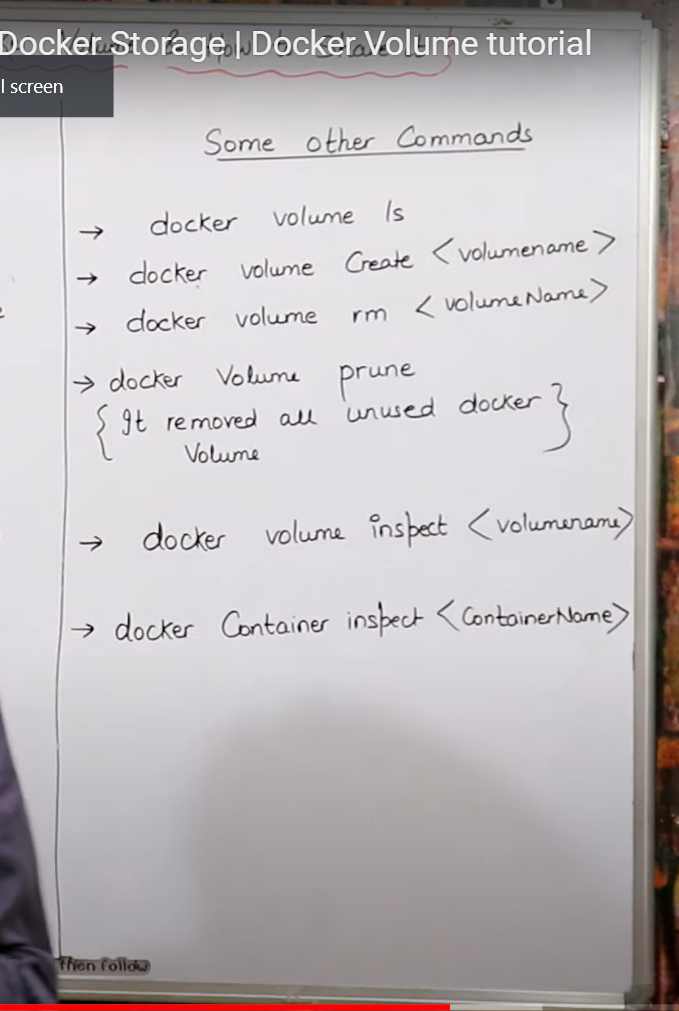 Docker Storage | Docker Volume tutorial
l screen
Some other Commands
→ docker volume ls
→ docker volume Create <volumename>
→ docker volume rm <volumeName>
→ docker Volume prune
{ It removed all unused docker }
Volume
→ docker volume inspect <volumename>
→ docker Container inspect <ContainerName>
Then follow